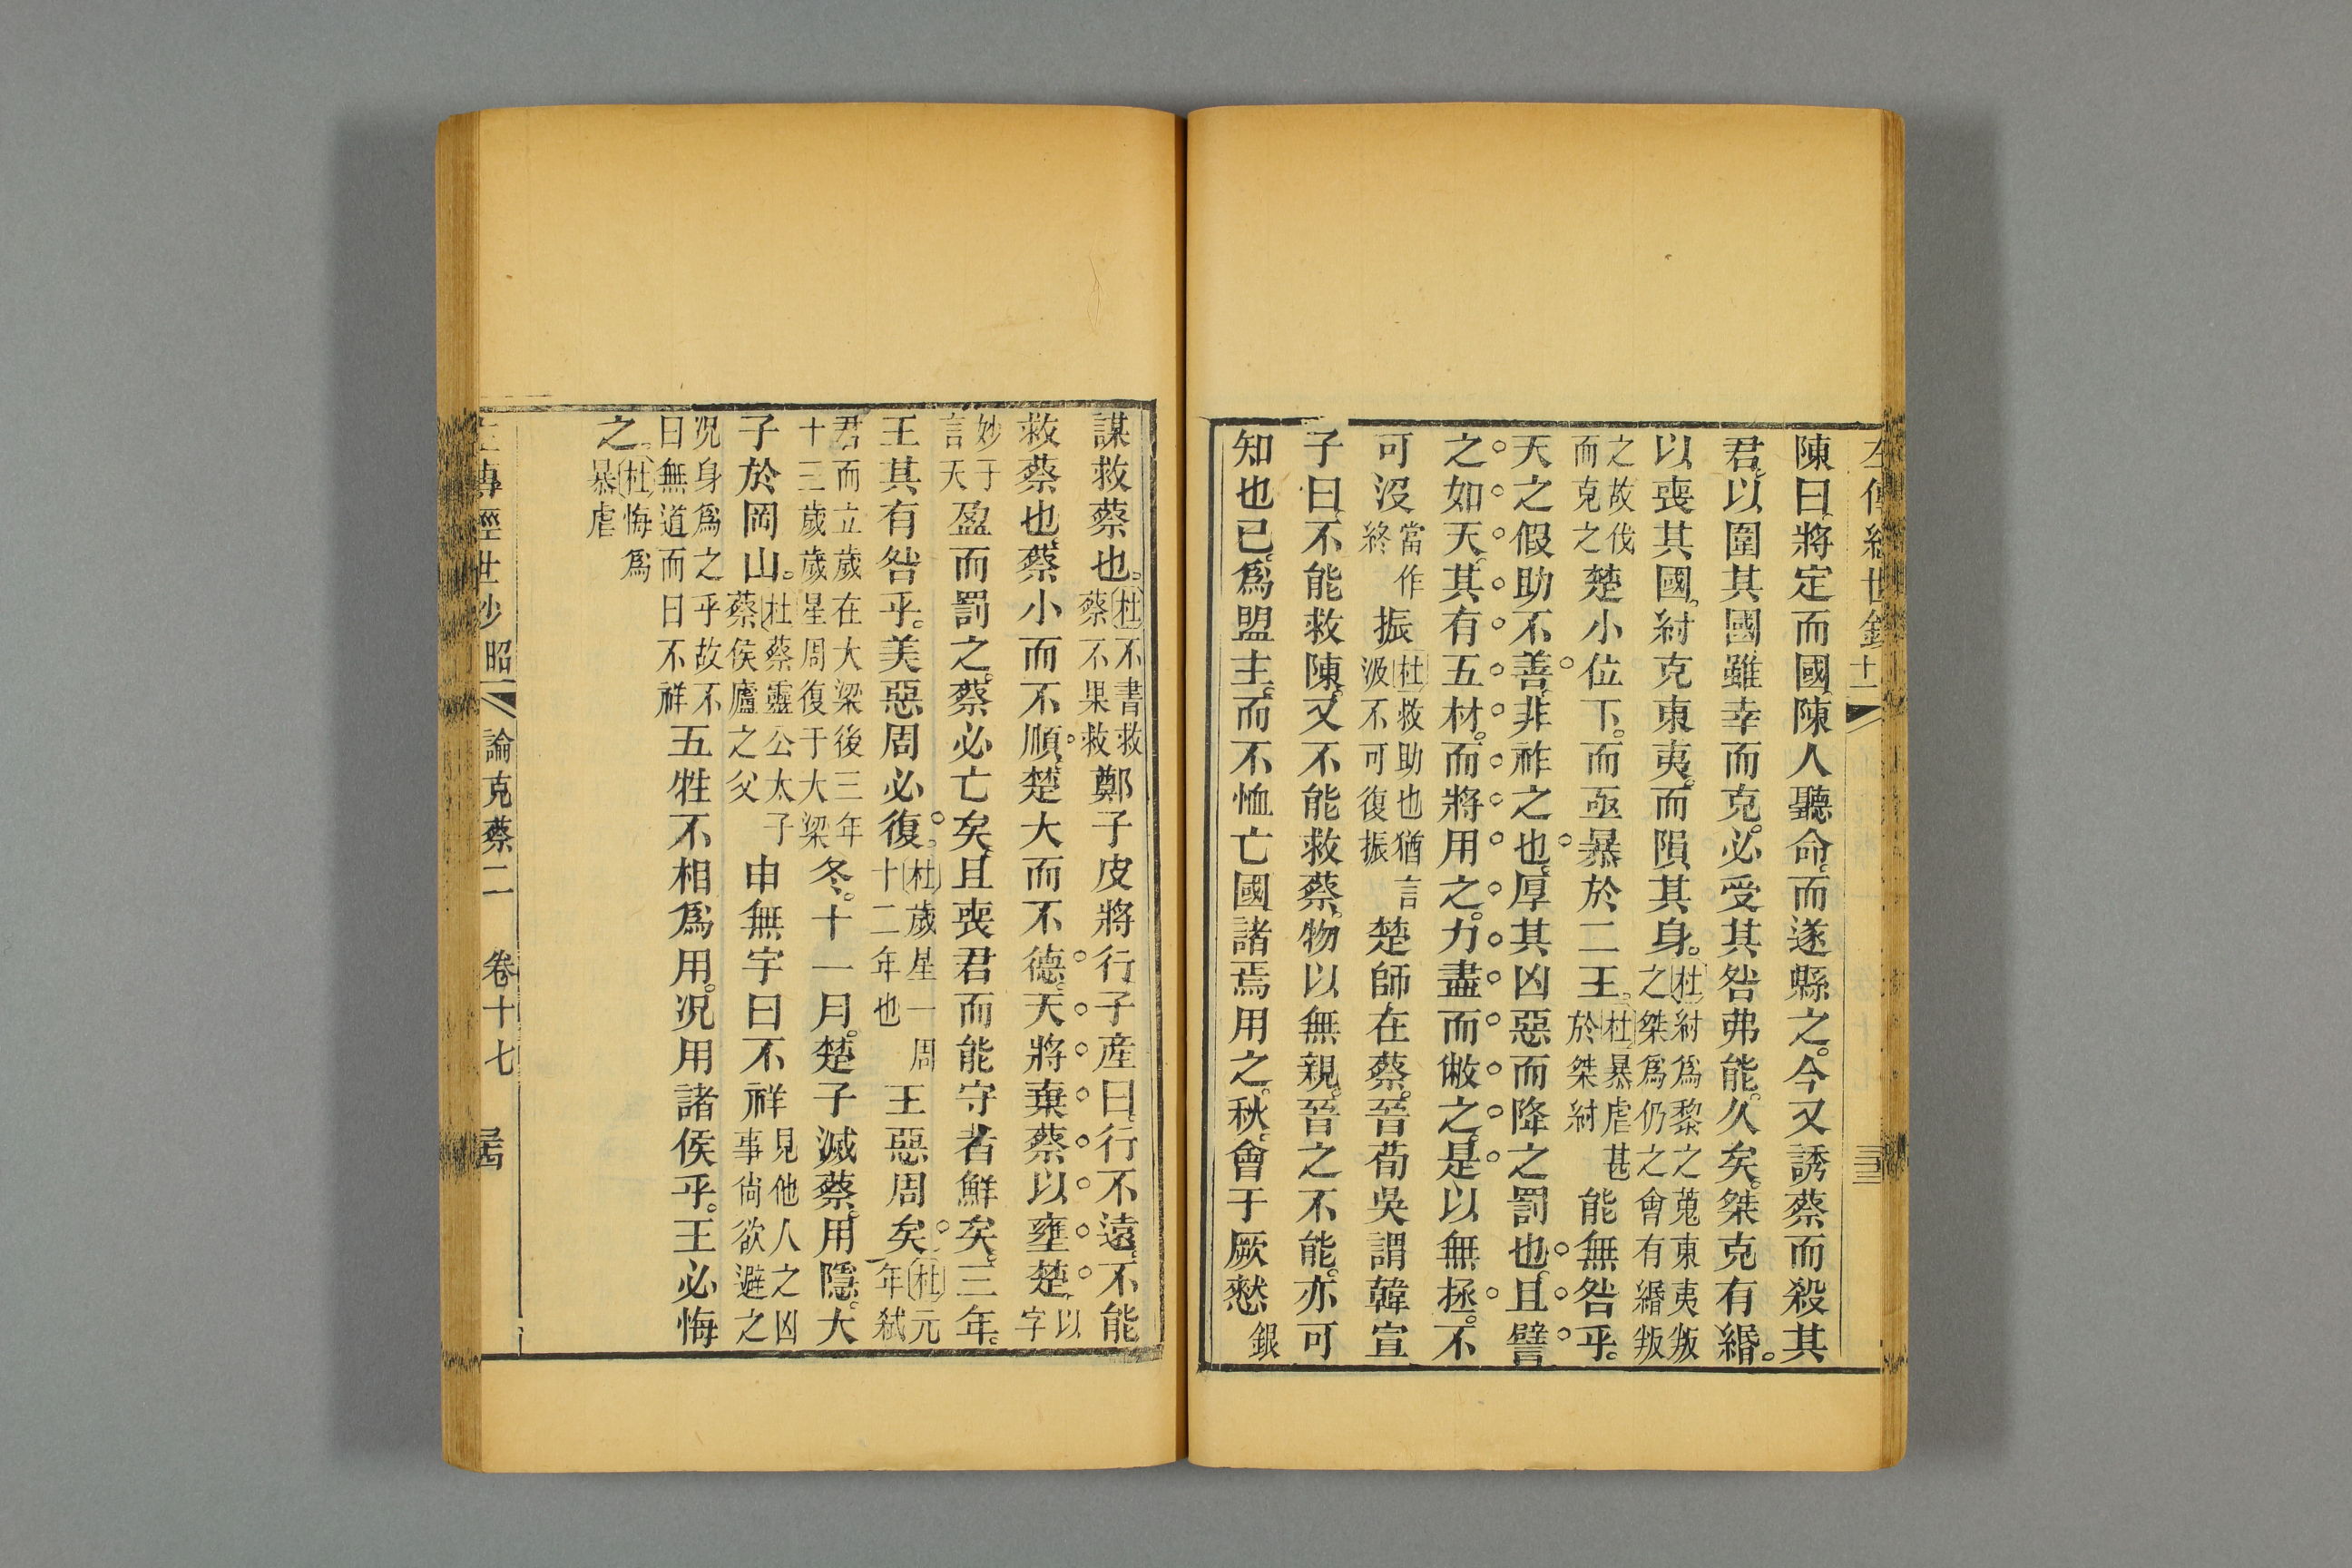 左傳經世鈔 十一
陳曰。將定而國。陳人聽命。而遂縣之。今又誘蔡而殺其
君。以圍其國。雖幸而克。必受其咎。弗能久矣。桀克有緡。
以喪其國。紂克東夷。而隕其身。杜紂爲黎之蒐東夷叛之桀爲仍之會有緡叛
之故伐而克之楚小位下。而亟暴於二王。杜暴虐甚於桀紂能無咎乎。
天之假助不善。非祚之也。厚其凶惡而降之罰也。且譬
之如天。其有五材。而將用之。力盡而敝之。是以無拯。不
可沒當作終振杜救助也猶言汲不可復振楚師在蔡。晉荀吳謂韓宣
子曰。不能救陳。又不能救蔡。物以無親。晉之不能。亦可
知也已。爲盟主。而不恤亡國諸焉用之。秋。會于厥憖銀
謀救蔡也。杜不書救蔡不果救鄭子皮將行子產曰。行不遠。不能
救蔡也。蔡小而不順。楚大而不德。天將棄蔡以壅楚。以字
妙于言天盈而罰之。蔡必亡矣。且喪君而能守者鮮矣。三年。
王其有咎乎。美惡周必復。杜歲星一周十二年也王惡周矣。杜元年弑
君而立歲在大梁後三年十三歲歲星周復于大梁冬。十一月。楚子滅蔡。用隱大
子於岡山。杜蔡靈公太子蔡侯廬之父申無宇曰不祥見他人之凶事尙欲避之
况身爲之乎故不曰無道而曰不祥五牲不相爲用。况用諸侯乎。王必悔
之。杜悔爲暴虐
左傳經世鈔 昭 論克蔡二 卷十七